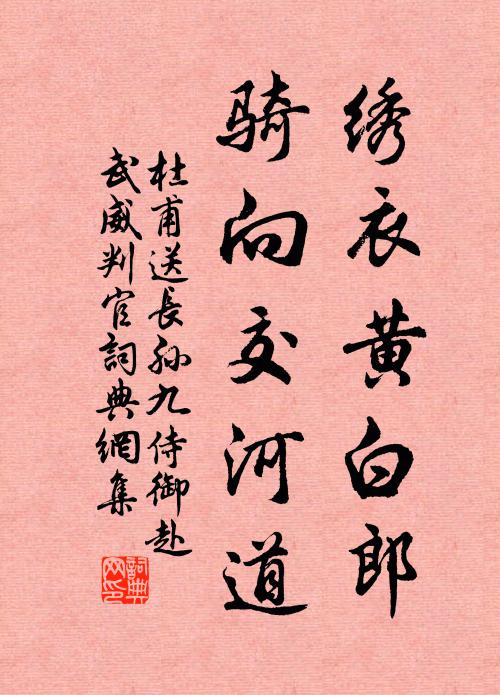 绣衣黄白郎
骑向交河道
杜甫送長孫九侍御赴
武威判官詞典網集
詞典
网印